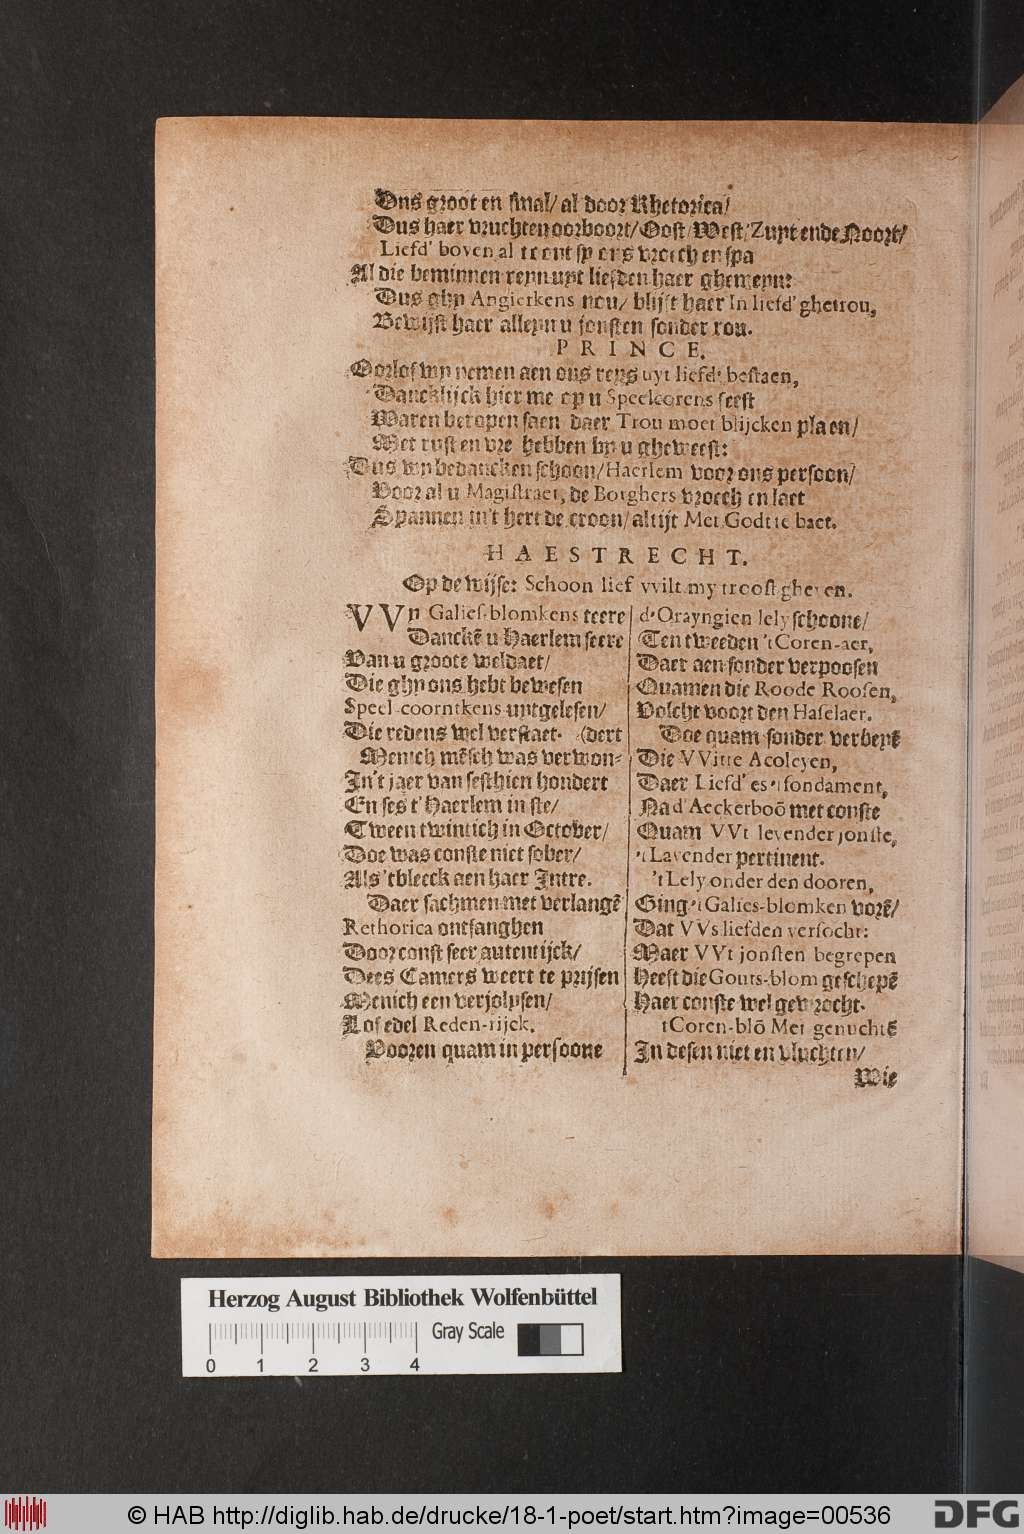 Ons groot en smal/ al door Rhetorica/
Dus haer vruchten oorboort/ Oost/ West/ Zuyt ende Noort/
Liefd' boven al toont sy ons vroech en spa
Al die beminnen reyn uyt liefden haer ghemeyn:
Dus ghy Angierkens nou/ blijft haer In liefd' ghetrou,
Bewijst haer alleyn u jonsten sonder rou.
PRINCE.
Oorlof wy nemen aen ons reys uyt liefd' bestaen,
Danckbijck hier me op u Speelcorens feest
Waren beropen saen daer Trou moet blijcken plaen/
Met rust en vre hebben by u gheweest:
Dus wy bedancken schoon/ Haerlem voor ons persoon/
Voor al u Magistraet, de Borghers vroech en laet
Spannen in't hert de croon/ altijt Met Godt te baet.
HAESTRECHT.
Op de wijse: Schoon lief vvilt my troost gheven.
VVy Galies-blomkens teere
Danckē u Haerlem seere
Van u groote weldaet/
Die ghy ons hebt bewesen
Speel-coorntkens uytgelesen/
Die redens wel verstaet. (dert
Menich mēsch was verwon-
In't jaer van sesthien hondert
En ses t'Haerlem in ste/
Tween twintich in October/
Doe was conste niet sober/
Als 'tbleeck aen haer Intre.
Daer sachmen met verlangē
Rethorica ontfanghen
Door const seer autentijck/
Dees Camers weert te prijsen
Menich een verjolysen/
Lof edel Reden-rijck.
Vooren quam in persoone
d'Orayngien lely schoone/
Ten tweeden 't Coren-aer,
Daer aen sonder verpoosen
Quamen die Roode Roosen,
Volcht voort den Haselaer.
Doe quam sonder verbeyē
Die VVitte Acoleyen,
Daer Liefd' es 't fondament,
Na d'Aeckerboō met conste
Quam VVt levender jonste,
't Lavender pertinent.
't Lely onder den dooren,
Ging 't Galies-blomken vorē/
Dat VVs liefden versocht:
Maer VVt jonsten begrepen
Heeft die Gouts-blom geschepē
Haer conste wel gewrocht.
tCoren-blō Met genuchtē
In desen niet en vluchten/
Wie
Herzog August Bibliothek Wolfenbüttel
Gray Scale
0 1 2 3 4
© HAB http://diglib.hab.de/drucke/18-1-poet/start.htm?image=00536
DFG